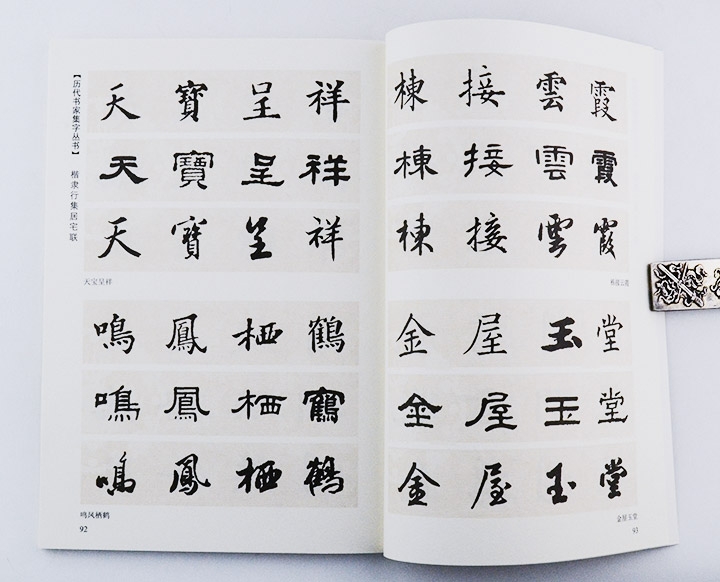 【历代书家集字丛书】 楷隶行集居宅联
天寶呈祥
天寶呈祥
天寶呈祥
天宝呈祥
鳴鳳栖鶴
鳴鳳栖鶴
鳴鳳栖鶴
鸣凤栖鹤
92
棟接雲霞
棟接雲霞
棟接雲霞
栋接云霞
金屋玉堂
金屋玉堂
金屋玉堂
金屋玉堂
93